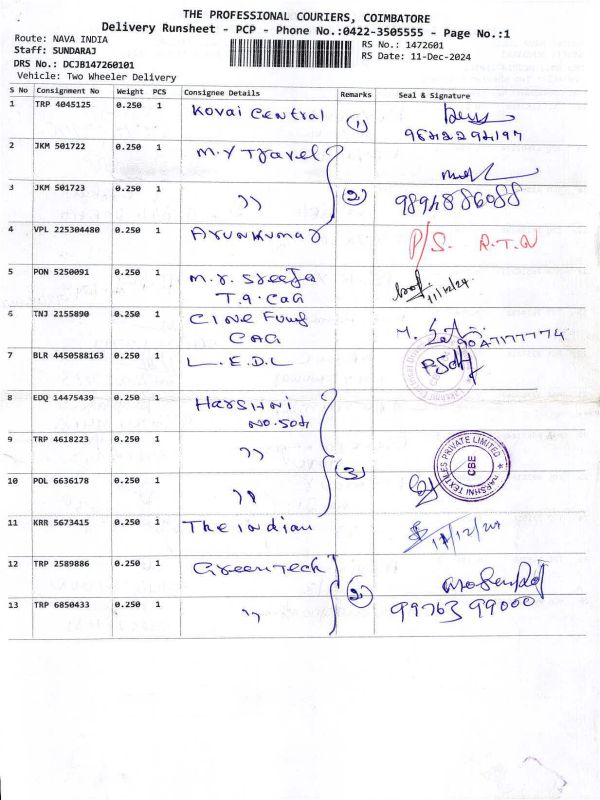 THE PROFESSIONAL COURIERS, COIMBATORE
Delivery Runsheet - PCP - Phone No.:0422-3505555 - Page No.:1
Route: NAVA INDIA
RS No.: 1472601
Staff: SUNDARAJ
RS Date: 11-Dec-2024
DRS No.: DCJB147260101
Vehicle: Two Wheeler Delivery
S No Consignment No Weight PCS Consignee Details Remarks Seal & Signature
1 TRP 4045125 0.250 1 Kovai Central 1)
2 JKM 501722 0.250 1 M.Y Travel
3 JKM 501723 0.250 1 ,, 2) 9894886088
4 VPL 225304480 0.250 1 Arunkumar P/S. R.T.N
5 PON 5250091 0.250 1 M.r. Sreeja
11/12/24
6 TNJ 2155890 0.250 1 Cine Fung
9047177774
7 BLR 4450588163 0.250 1 L.E.D.L
8 EDQ 14475439 0.250 1 Harshni
9 TRP 4618223 0.250 1 ,, 3)
HARSHNI TEXTILES PRIVATE LIMITED
CBE
10 POL 6636178 0.250 1 ,,
11 KRR 5673415 0.250 1 The indian 11/12/24
12 TRP 2589886 0.250 1 Greentech
2)
13 TRP 6850433 0.250 1 ,, 99763 99000